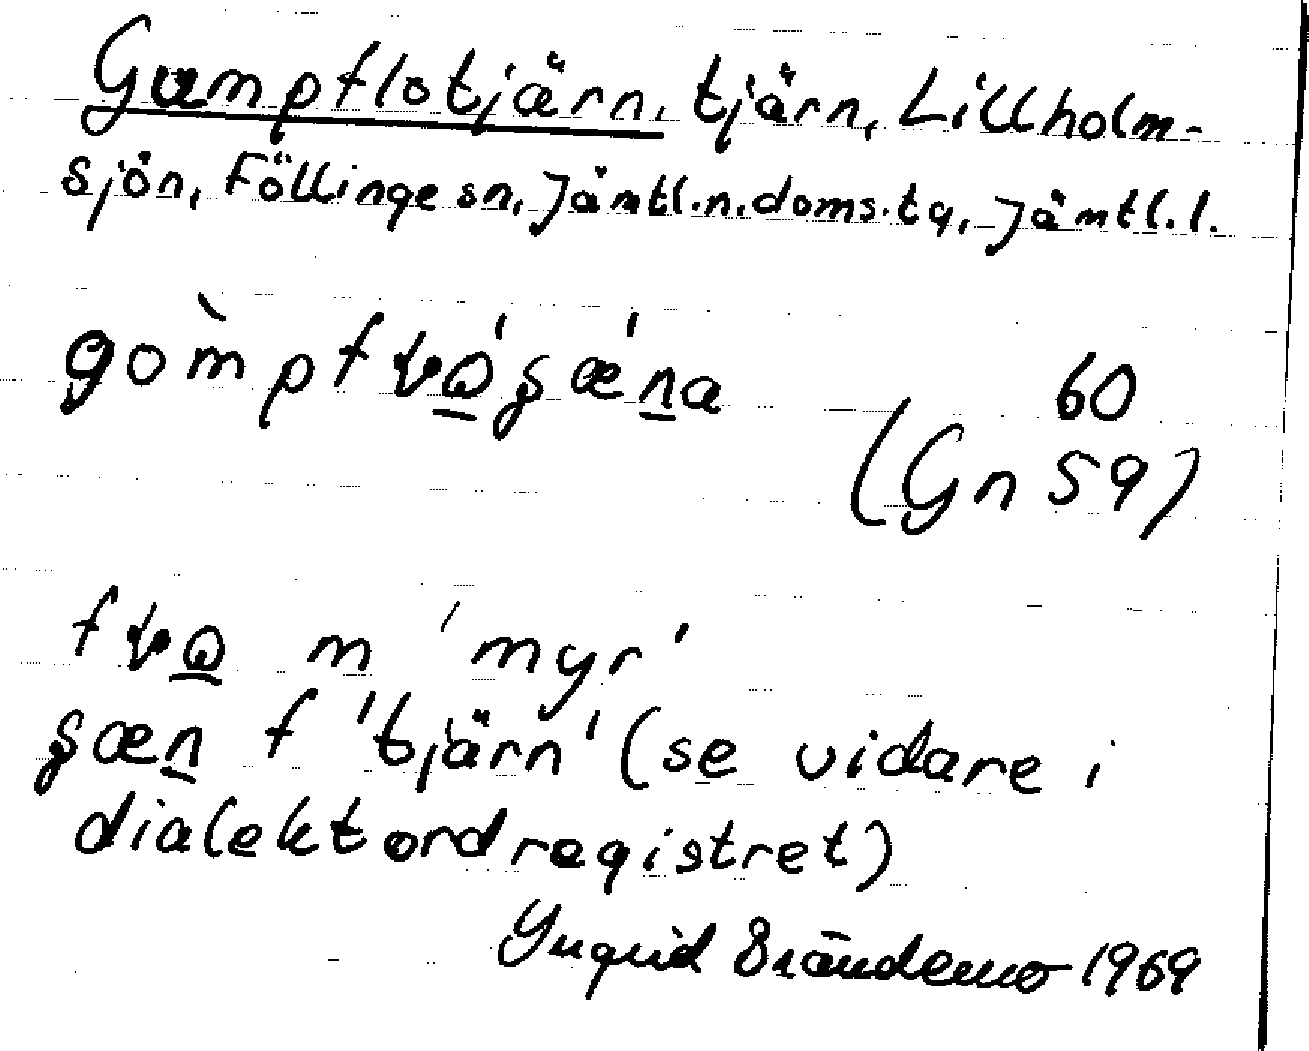 Gumpflotjärn, tjärn, Lillholm-
sjön, Föllinge sn, Jämtl.n.doms.tg, Jämtl.l.
60
(Gn 59)
m 'myr'
f 'tjärn' (se vidare i
dialektordregistret)
Ingrid Brändemo 1969